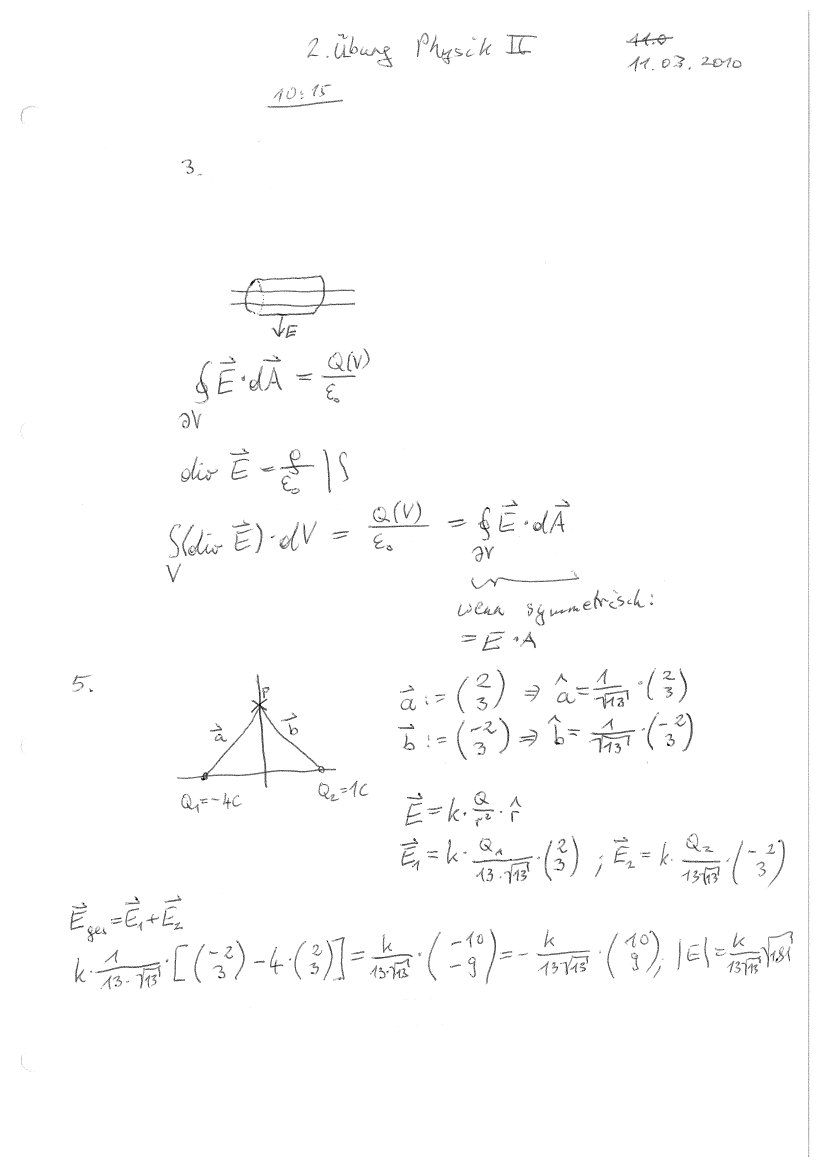 2. Übung Physik II
11.0
11.03.2010
10:15
3.
E
∮_∂V E⃗ · dA⃗ = Q(V)/ε₀
div E⃗ = ρ/ε₀ | ∫
∫_V (div E⃗) · dV = Q(V)/ε₀ = ∮_∂V E⃗ · dA⃗
wenn symmetrisch:
= E · A
5.
P
a⃗ b⃗
Q₁=-4C Q₂=1C
a⃗ := (2 3) ⇒ â = 1/√13 · (2 3)
b⃗ := (-2 3) ⇒ b̂ = 1/√13 · (-2 3)
E⃗ = k · Q/r² · r̂
E⃗₁ = k · Q₁/(13·√13) · (2 3) ; E⃗₂ = k · Q₂/(13√13) · (-2 3)
E⃗ges = E⃗₁ + E⃗₂
k · 1/(13·√13) · [(-2 3) - 4 · (2 3)] = k/(13·√13) · (-10 -9) = - k/(13√13) · (10 9), |E| = k/(13√13) √181